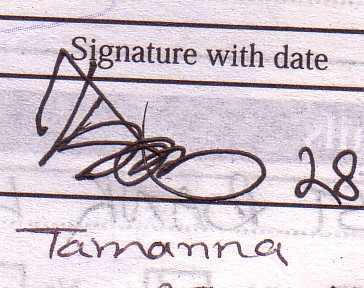 Signature with date
28
Tamanna